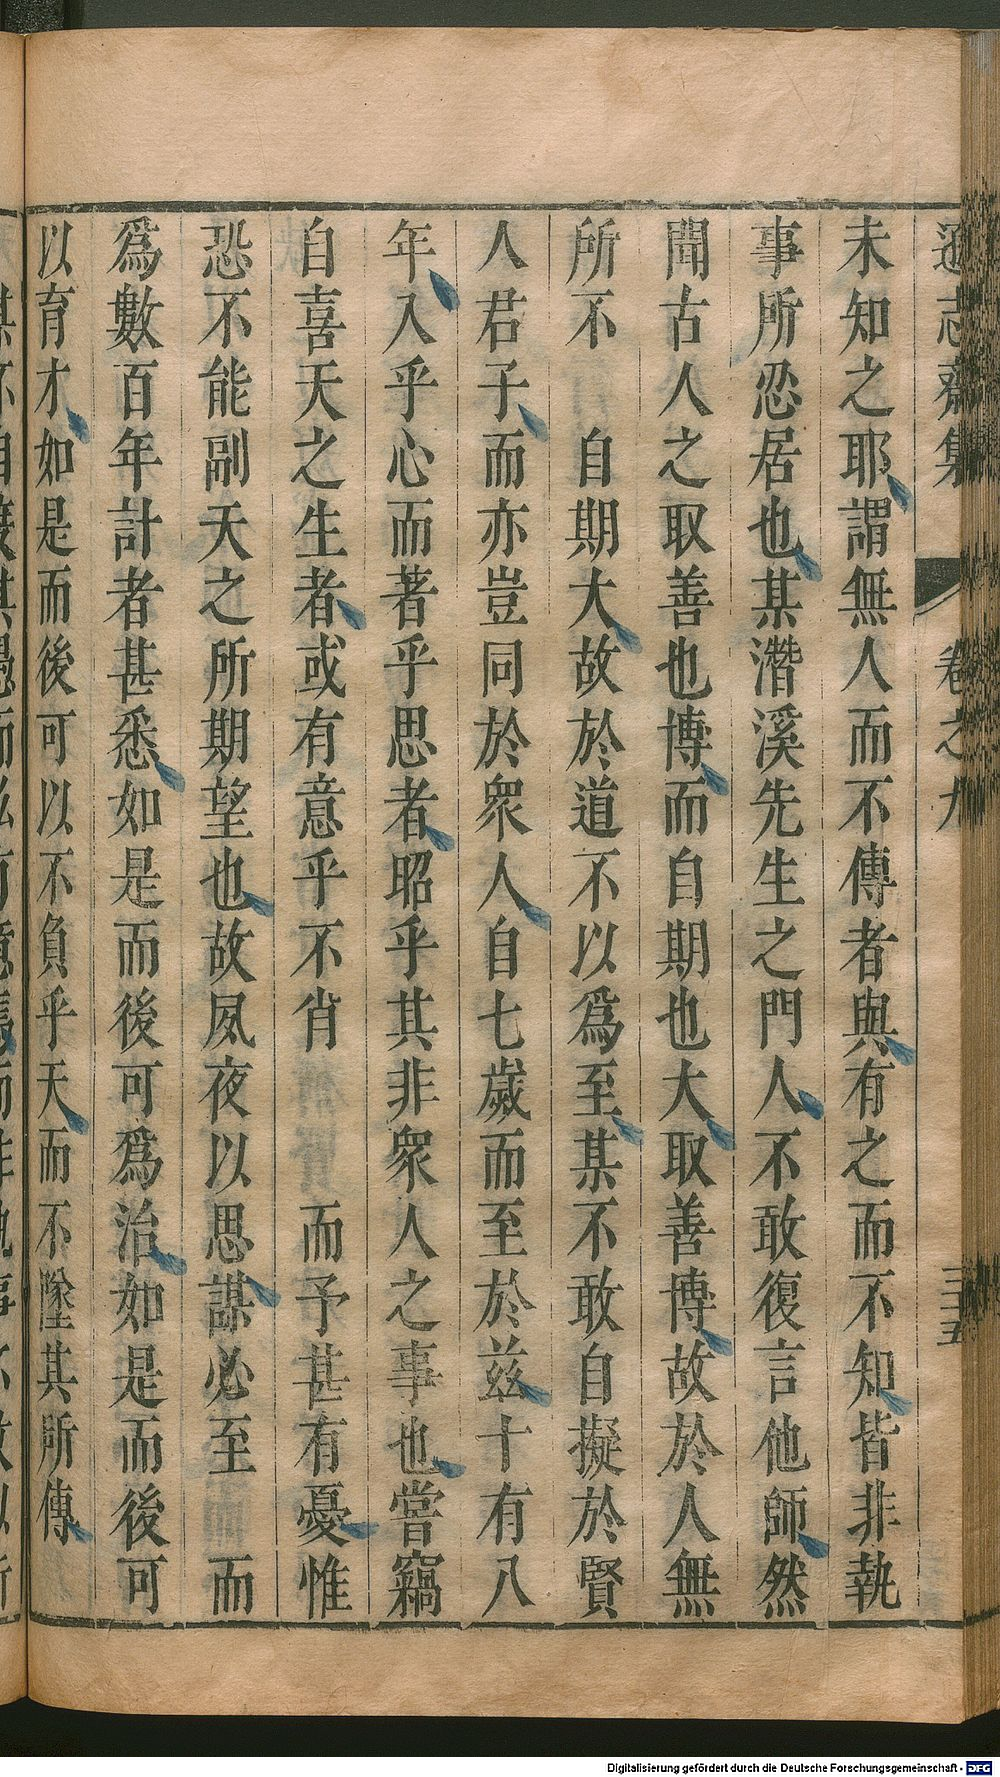 遜志齋集 卷之九 三五
未知之耶謂無人而不傳者與有之而不知皆非執
事所忍居也某濳溪先生之門人不敢復言他師然
聞古人之取善也博而自期也大取善博故於人無
所不　自期大故於道不以爲至某不敢自擬於賢
人君子而亦豈同於衆人自七歲而至於兹十有八
年入乎心而著乎思者昭乎其非衆人之事也嘗竊
自喜天之生者或有意乎不肖　　而予甚有憂惟
恐不能副天之所期望也故夙夜以思謀必至　而
爲數百年計者甚悉如是而後可爲治如是而後可
以育才如是而後可以不負乎天而不墜其所傳
Digitalisierung gefördert durch die Deutsche Forschungsgemeinschaft - DFG